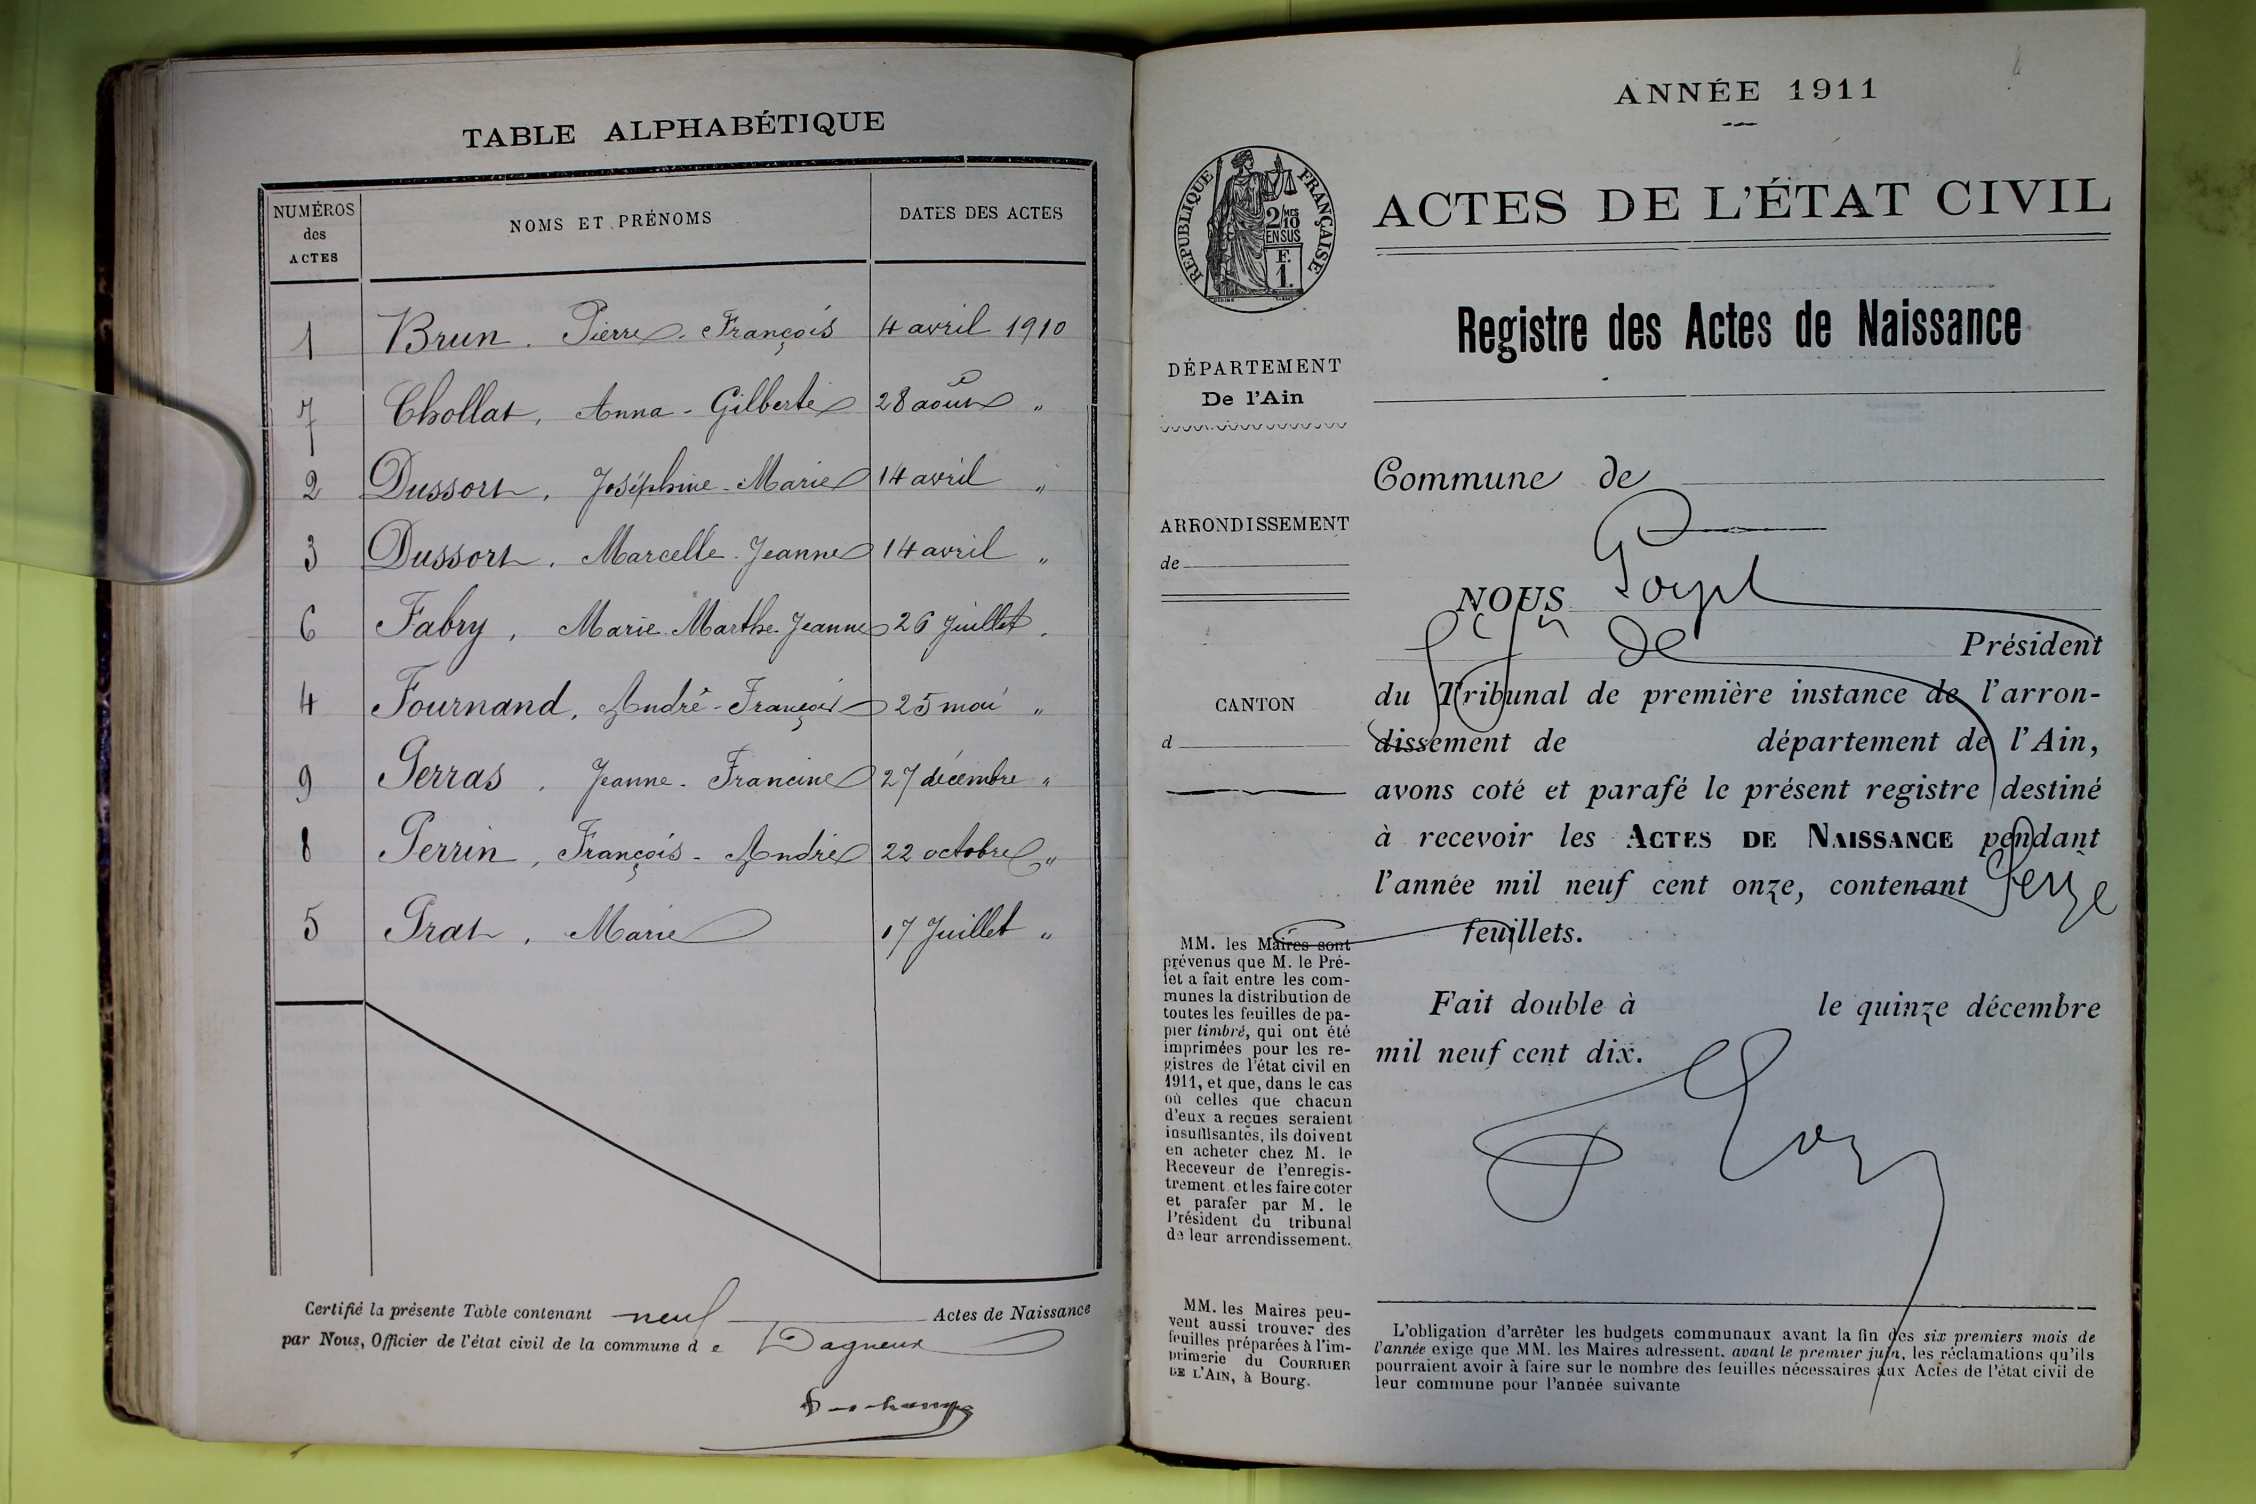 TABLE ALPHABÉTIQUE
NUMÉROS des ACTES NOMS ET PRÉNOMS DATES DES ACTES
1 Brun, Pierre-François 4 avril 1910
7 Chollat, Anna-Gilberte 28 août "
2 Dussort, Joséphine-Marie 14 avril "
3 Dussort, Marcelle-Jeanne 14 avril "
6 Fabry, Marie Marthe Jeanne 26 Juillet "
4 Fournand, André-François 25 mai "
9 Perras, Jeanne-Francine 27 décembre "
8 Perrin, François-André 22 octobre "
5 Prat, Marie 17 Juillet "
Certifié la présente Table contenant neuf Actes de Naissance
par Nous, Officier de l'état civil de la commune de Dagneux
ANNÉE 1911
RÉPUBLIQUE FRANÇAISE
2 MES 10 EN SUS
F. 1.
ACTES DE L'ÉTAT CIVIL
Registre des Actes de Naissance
DÉPARTEMENT
De l'Ain
ARRONDISSEMENT
de
CANTON
d
MM. les Maires sont
prévenus que M. le Pré-
fet a fait entre les com-
munes la distribution de
toutes les feuilles de pa-
pier timbré, qui ont été
imprimées pour les re-
gistres de l'état civil en
1911, et que, dans le cas
où celles que chacun
d'eux a reçues seraient
insuffisantes, ils doivent
en acheter chez M. le
Receveur de l'enregis-
trement et les faire coter
et parafer par M. le
Président du tribunal
de leur arrondissement.
MM. les Maires peu-
vent aussi trouver des
feuilles préparées à l'im-
primerie du COURRIER
DE L'AIN, à Bourg.
Commune de
NOUS
Président
du Tribunal de première instance de l'arron-
dissement de département de l'Ain,
avons coté et parafé le présent registre destiné
à recevoir les ACTES DE NAISSANCE pendant
l'année mil neuf cent onze, contenant
feuillets.
Fait double à le quinze décembre
mil neuf cent dix.
L'obligation d'arrêter les budgets communaux avant la fin des six premiers mois de
l'année exige que MM. les Maires adressent, avant le premier juin, les réclamations qu'ils
pourraient avoir à faire sur le nombre des feuilles nécessaires aux Actes de l'état civil de
leur commune pour l'année suivante